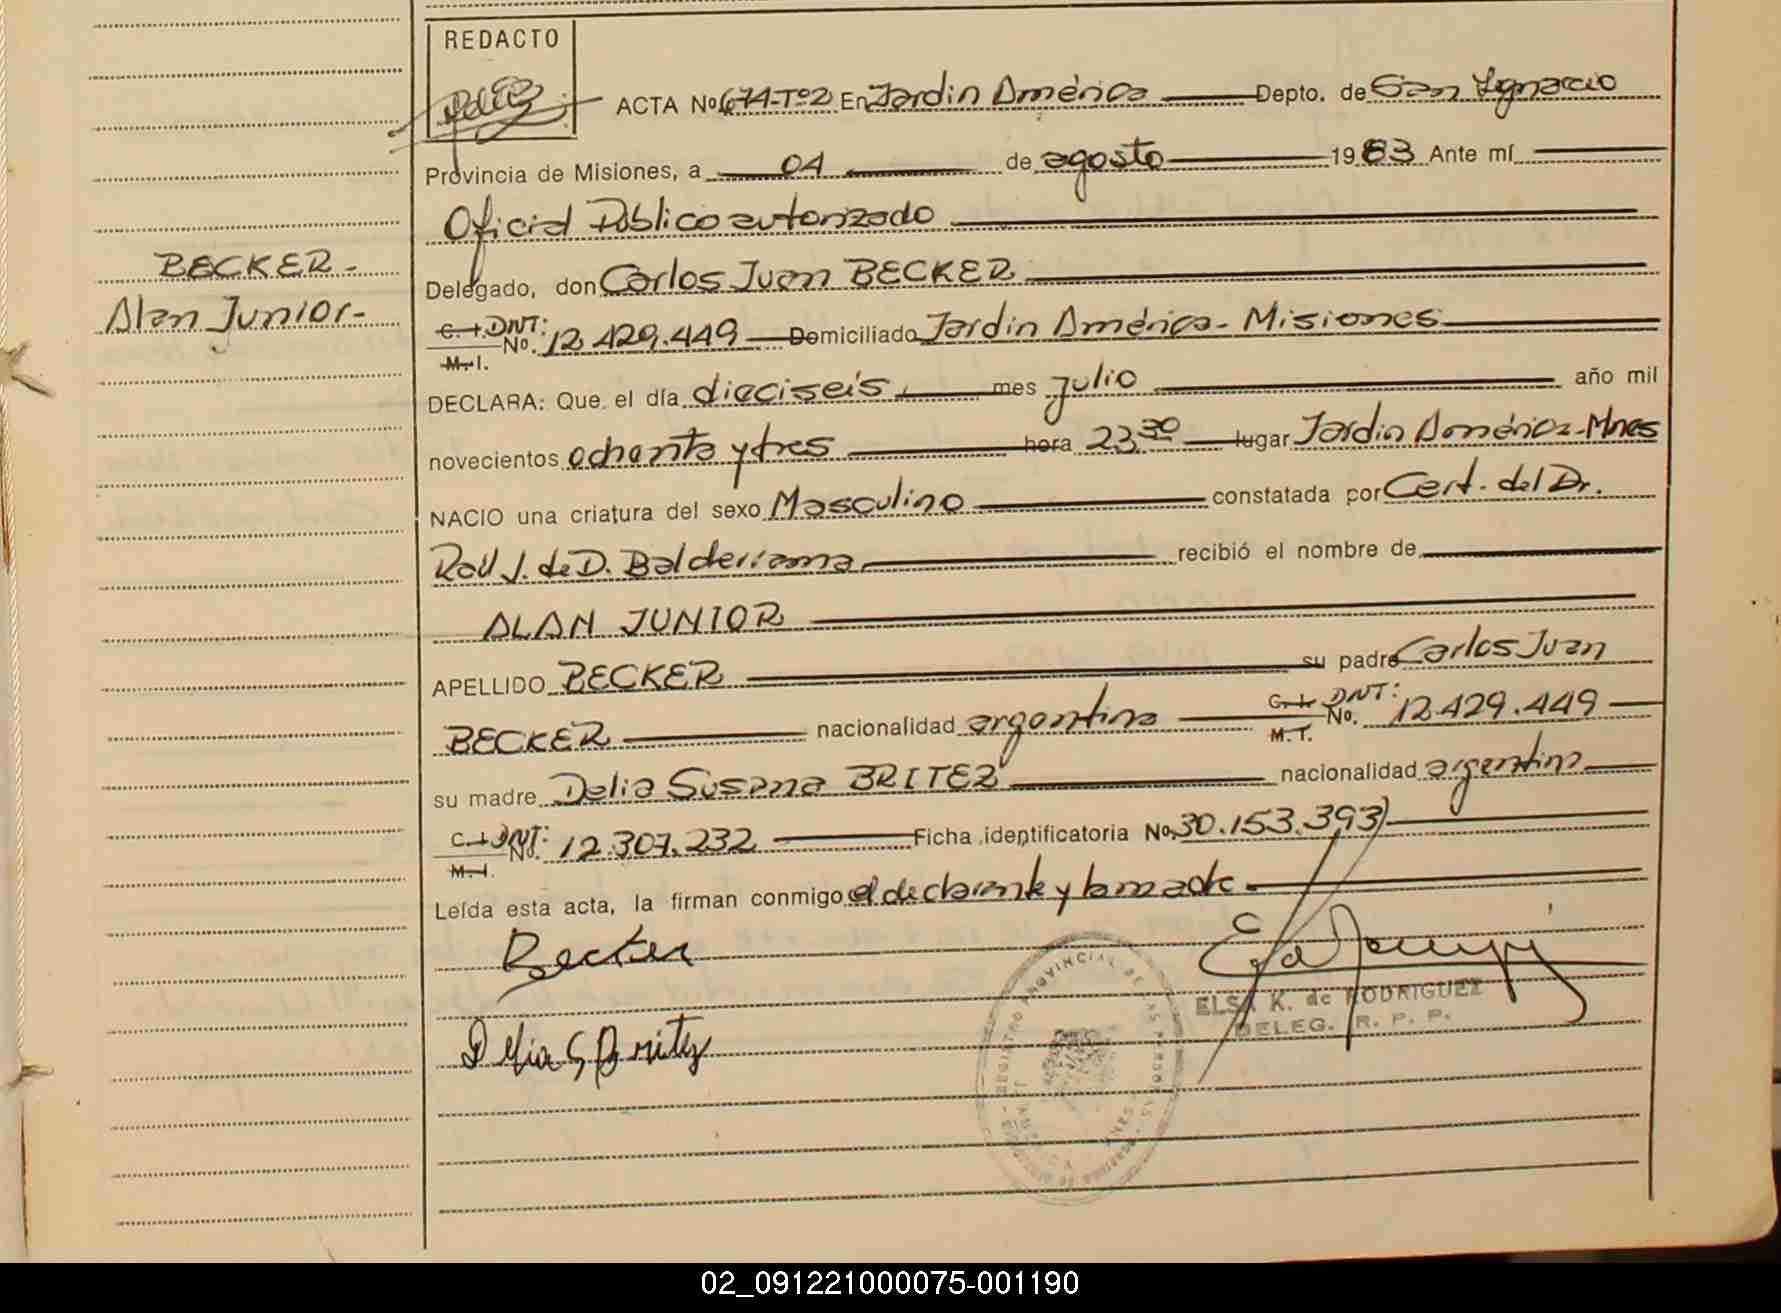 REDACTO
ACTA No 674-Tº2 En Jardín América Depto. de San Ignacio
Provincia de Misiones, a 04 de agosto 1983 Ante mí
Oficial Público autorizado
BECKER-
Delegado, don Carlos Juan BECKER
Alan Junior-
C.I. DNT:
No. 12.429.449 Domiciliado Jardín América- Misiones
M.I.
DECLARA: Que el día dieciseis mes julio año mil
novecientos ochenta y tres hora 23.30 lugar Jardín América-Mnes
NACIO una criatura del sexo Masculino constatada por Cert. del Dr.
Raúl J. de D. Balderrama recibió el nombre de
ALAN JUNIOR
APELLIDO BECKER su padre Carlos Juan
BECKER nacionalidad argentina C.I. DNT: No. 12.429.449
M.I.
su madre Delia Susana BRITEZ nacionalidad argentina
C.I. DNT: No. 12.307.232 Ficha identificatoria No. 30.153.393)
M.I.
Leída esta acta, la firman conmigo el declarante y la madre-
Becker
ELSA K. de RODRIGUEZ
DELEG. R. P. P.
Delia S Britez
REGISTRO PROVINCIAL DE LAS PERSONAS
02_091221000075-001190